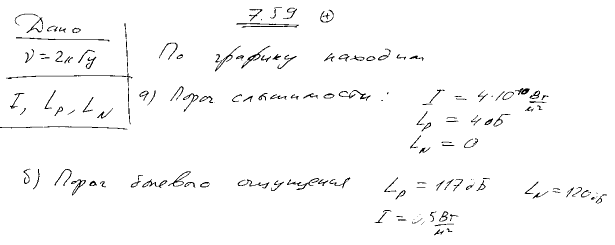 7.59 (+)
Дано
ν = 2кГц
I, Lp, LN
По графику находим
а) Порог слышимости: I = 4·10⁻¹⁰ Вт/м²
Lp = 4 дБ
LN = 0
б) Порог болевого ощущения Lp = 117 дБ LN = 120 дБ
I = 0,5 Вт/м²